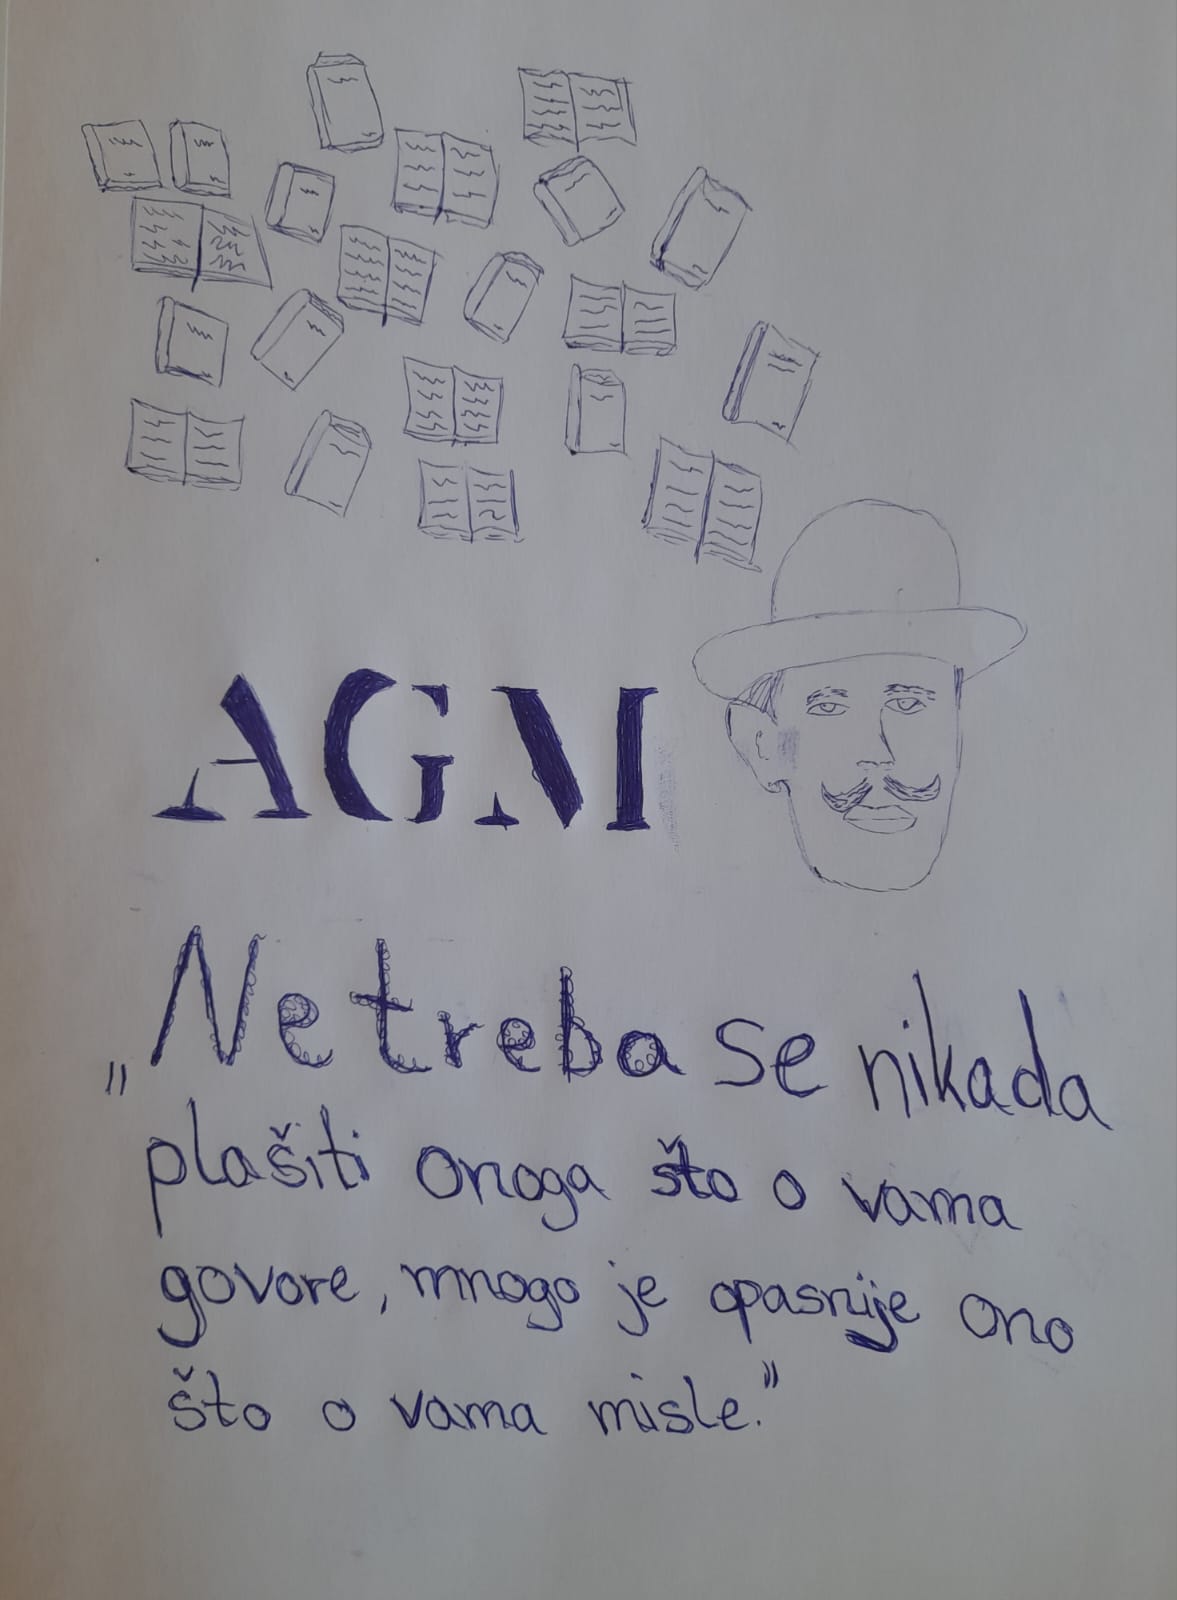 AGM
„Ne treba se nikada
plašiti onoga što o vama
govore, mnogo je opasnije ono
što o vama misle."